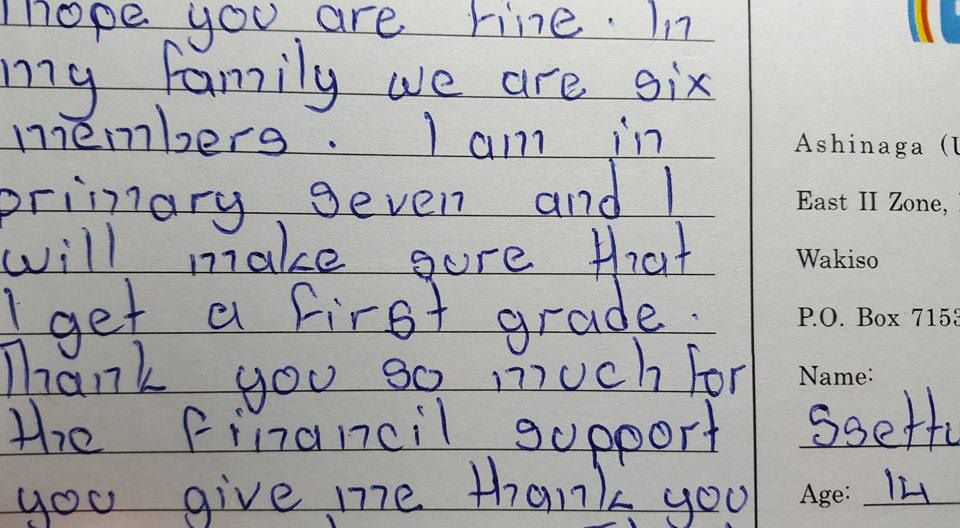 I hope you are fine. In
my family we are six
members. I am in
primary seven and I
will make sure that
I get a first grade.
Thank you so much for
the financil support
you give me thank you
Ashinaga (U
East II Zone,
Wakiso
P.O. Box 7153
Name:
Ssettu
Age: 14